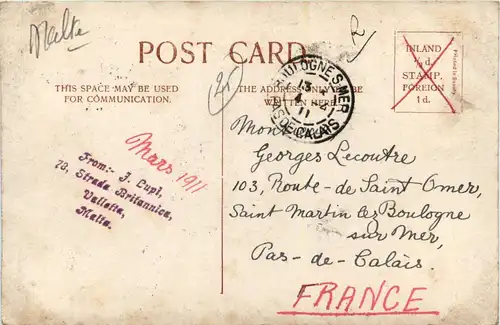 Malte
R
POST CARD.
THIS SPACE MAY BE USED
FOR COMMUNICATION.
THE ADDRESS ONLY TO BE
WRITTEN HERE
INLAND
½d
STAMP.
FOREIGN
1d.
BOULOGNE-S-MER
13
4
11
PAS DE CALAIS
Mars 1911
From:- J. Lupi,
78, Strada Britannica,
Valletta,
Malta.
Georges Lecoutre
103, Route-de Saint Omer,
Saint Martin lez Boulogne
sur Mer,
Pas-de-Calais.
FRANCE